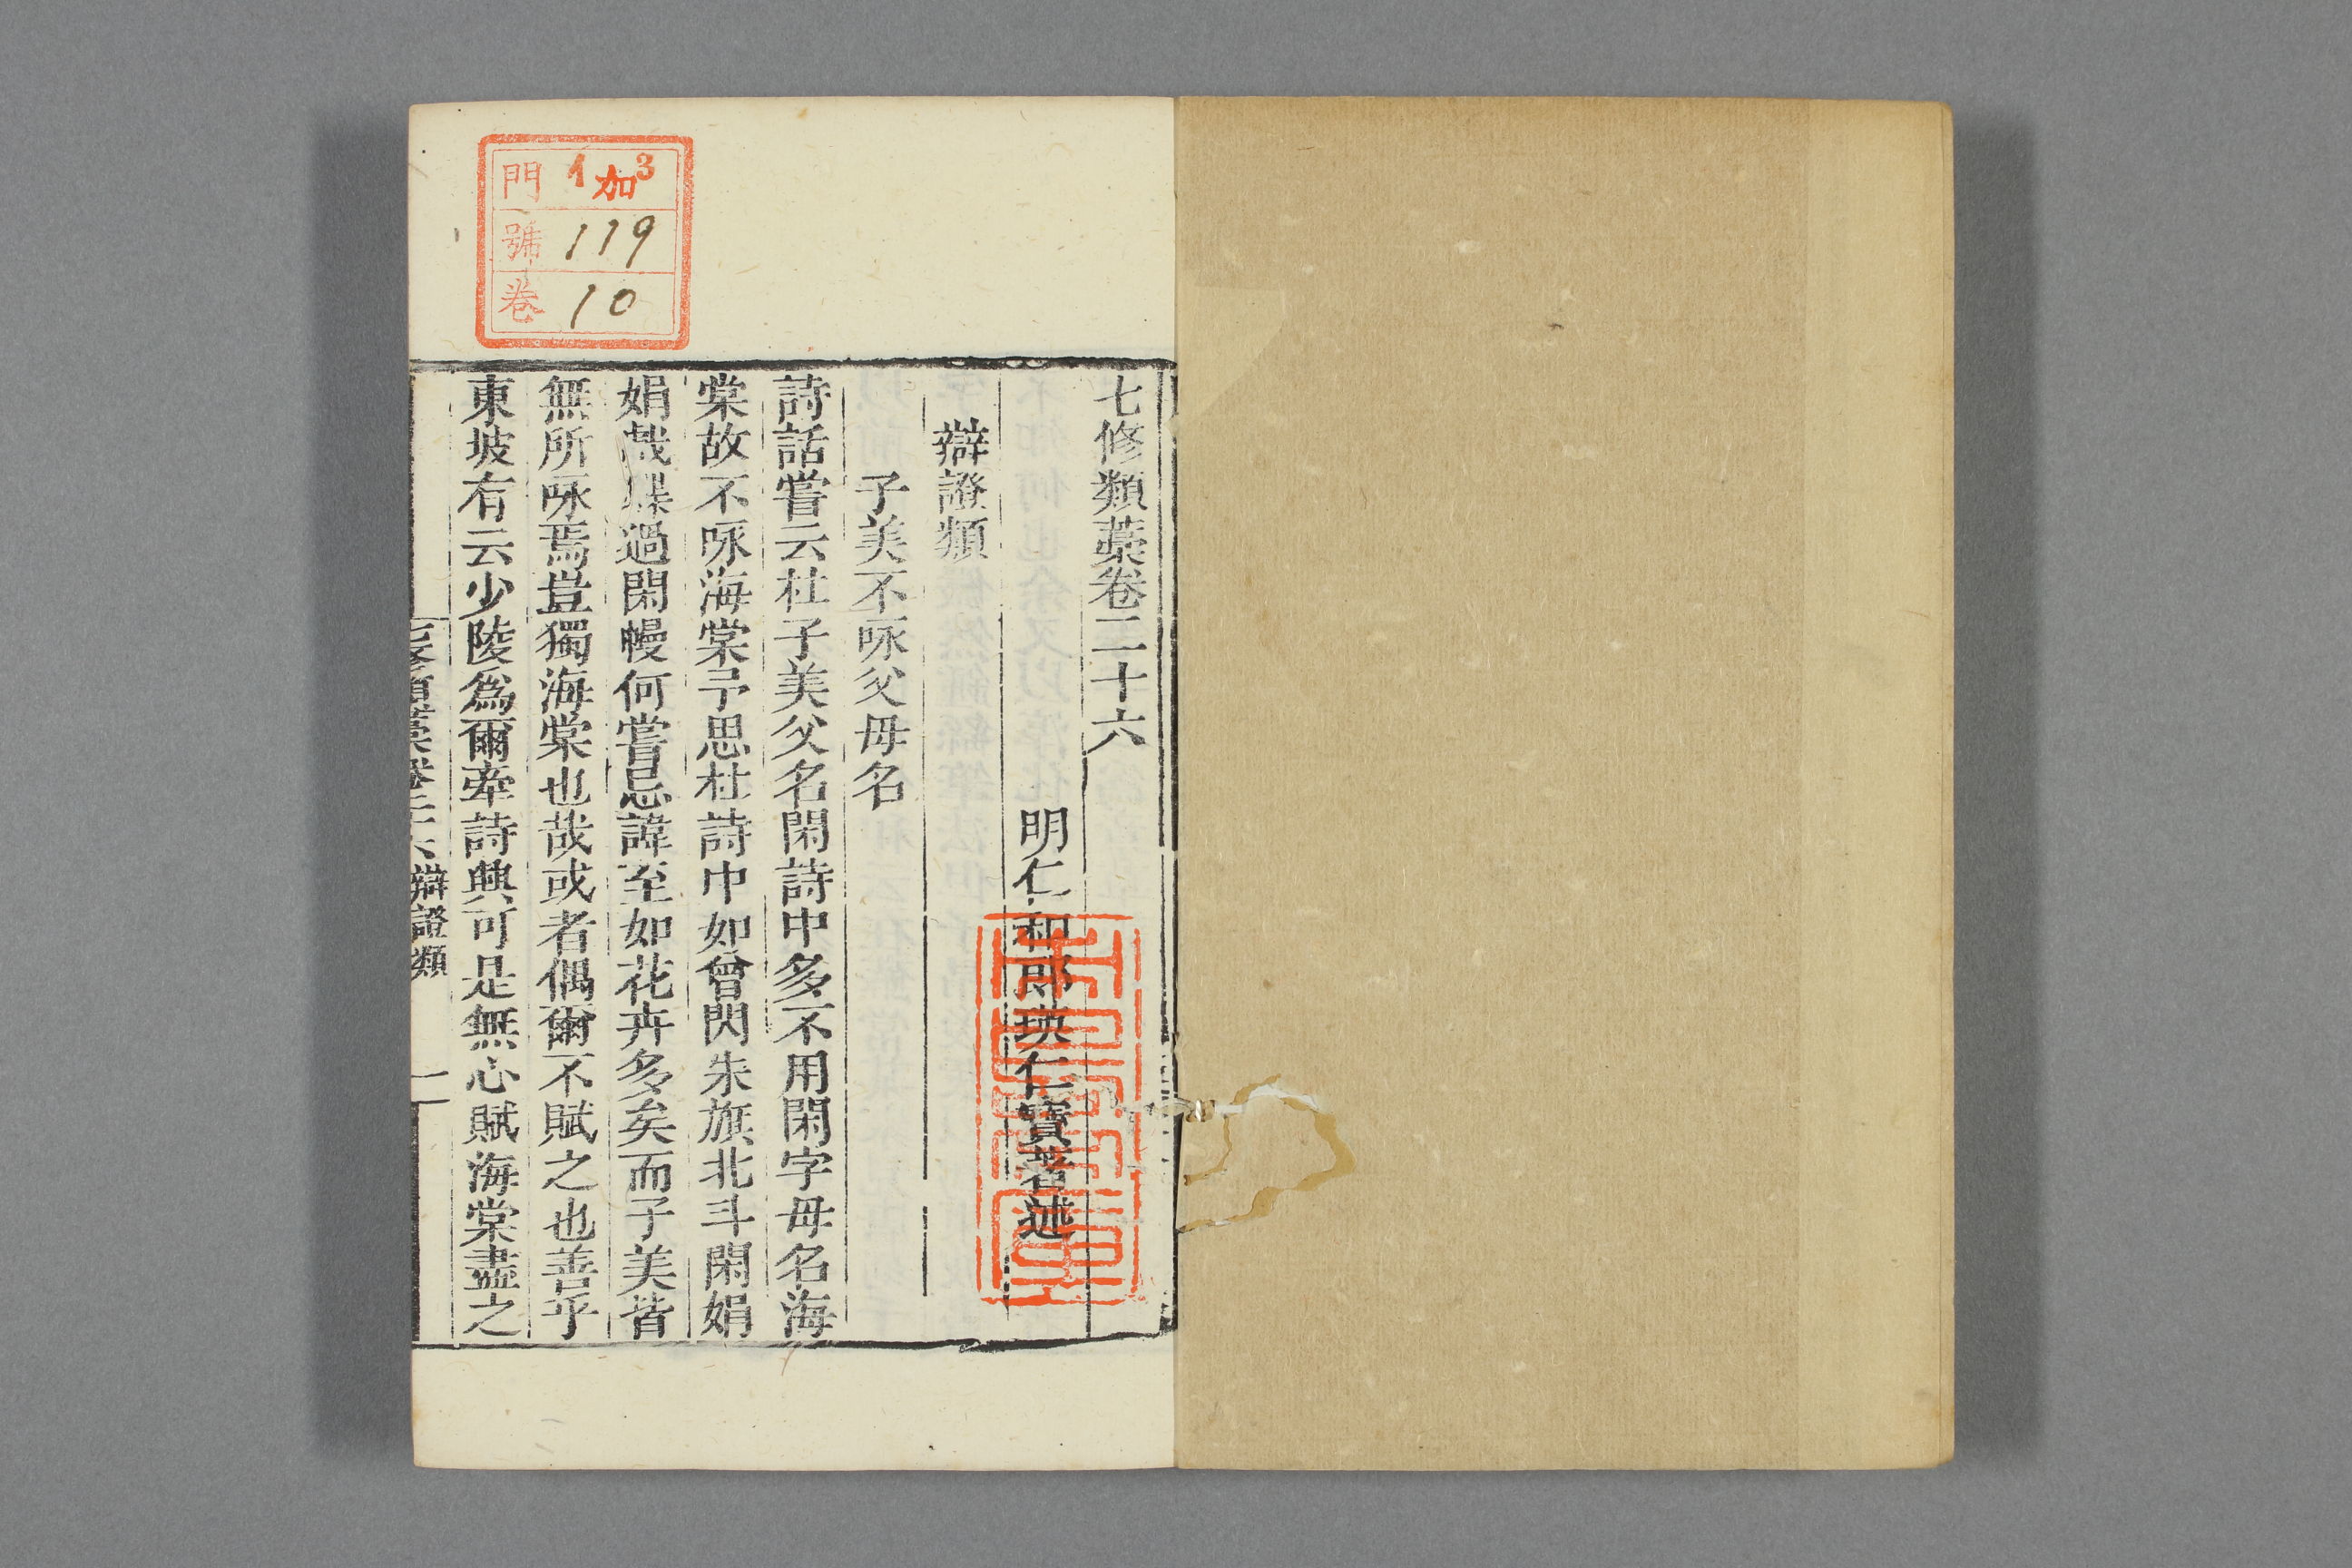 七修類藁卷二十六
明仁和郎瑛仁寶著述
辯證類
子美不咏父母名
詩話嘗云杜子美父名閑詩中多不用閑字母名海
棠故不咏海棠予思杜詩中如曾閃朱旗北斗閑娟
娟戲蝶過閑幔何嘗忌諱至如花卉多矣而子美皆
無所咏焉豈獨海棠也哉或者偶爾不賦之也善乎
東坡有云少陵爲爾牽詩興可是無心賦海棠盡之
七修類藁卷二十六 辯證類 一
門 1加3
號 119
卷 10